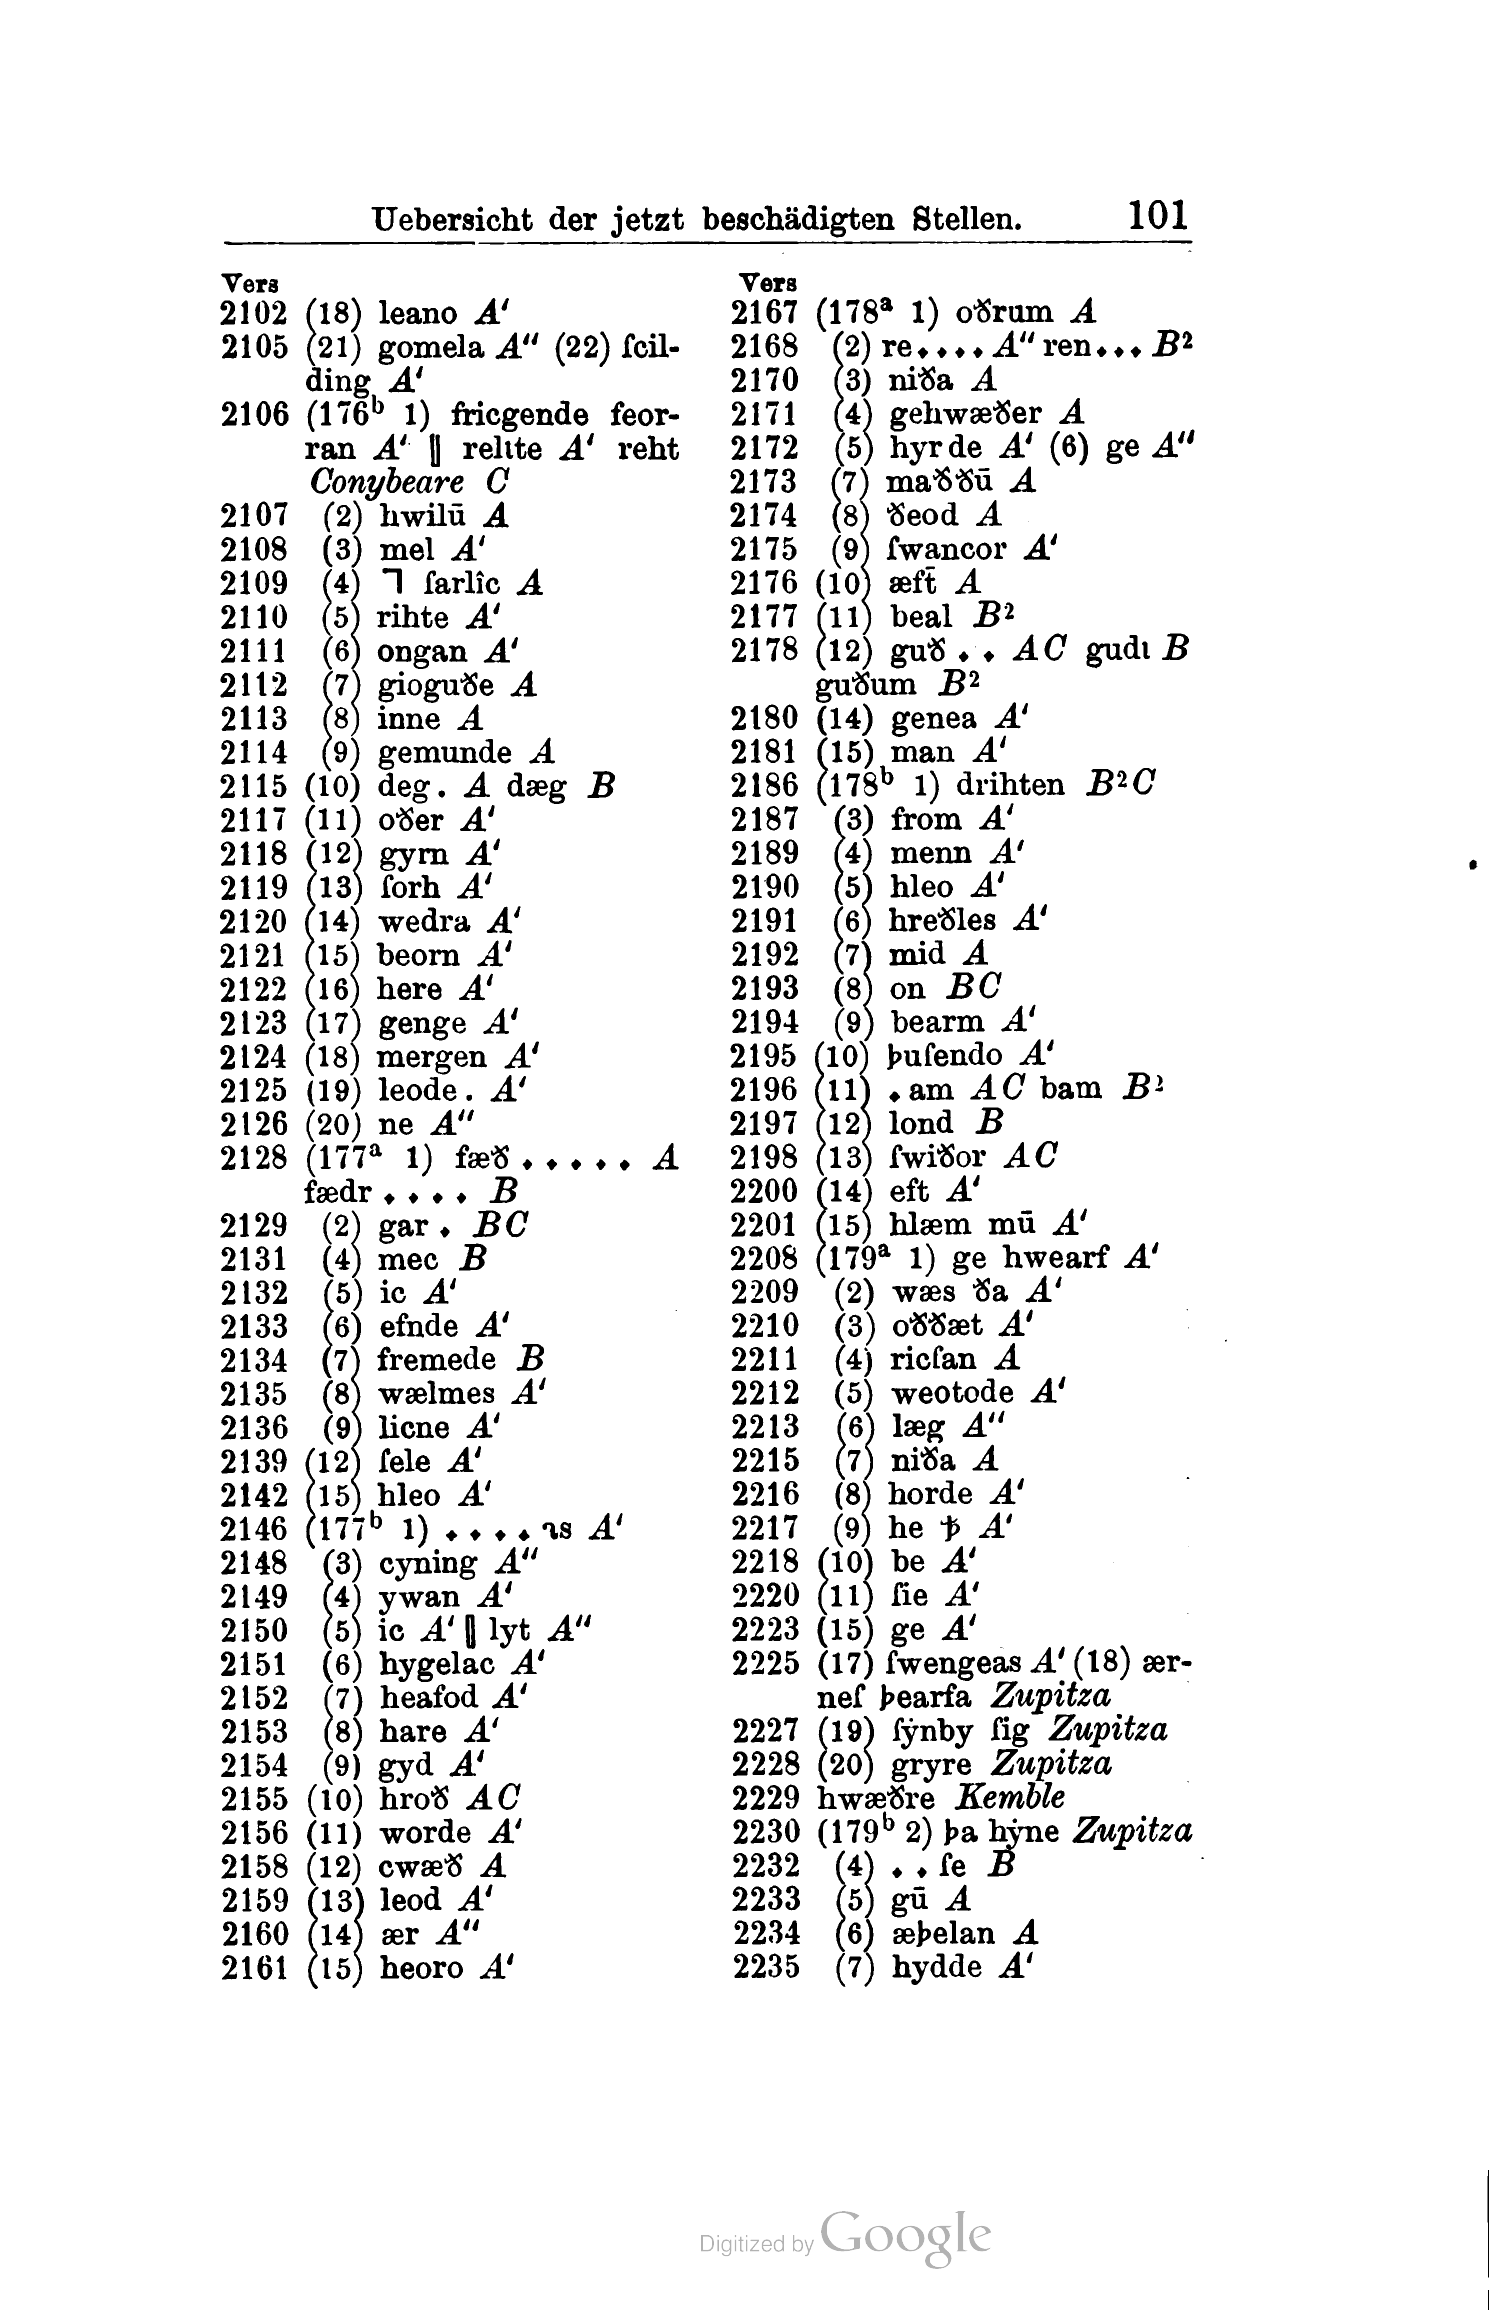 Uebersicht der jetzt beschädigten Stellen. 101
Vers
2102 (18) leano A'
2105 (21) gomela A'' (22) ſcil-
ding A'
2106 (176ᵇ 1) fricgende feor-
ran A' ‖ rehte A' reht
Conybeare C
2107 (2) hwilū A
2108 (3) mel A'
2109 (4) ⁊ ſarlîc A
2110 (5) rihte A'
2111 (6) ongan A'
2112 (7) gioguðe A
2113 (8) inne A
2114 (9) gemunde A
2115 (10) deg. A dæg B
2117 (11) oðer A'
2118 (12) gyrn A'
2119 (13) ſorh A'
2120 (14) wedra A'
2121 (15) beorn A'
2122 (16) here A'
2123 (17) genge A'
2124 (18) mergen A'
2125 (19) leode. A'
2126 (20) ne A''
2128 (177ᵃ 1) fæð..... A
fædr.... B
2129 (2) gar. BC
2131 (4) mec B
2132 (5) ic A'
2133 (6) efnde A'
2134 (7) fremede B
2135 (8) wælmes A'
2136 (9) licne A'
2139 (12) ſele A'
2142 (15) hleo A'
2146 (177ᵇ 1) ....ıs A'
2148 (3) cyning A''
2149 (4) ywan A'
2150 (5) ic A' ‖ lyt A''
2151 (6) hygelac A'
2152 (7) heafod A'
2153 (8) hare A'
2154 (9) gyd A'
2155 (10) hroð AC
2156 (11) worde A'
2158 (12) cwæð A
2159 (13) leod A'
2160 (14) ær A''
2161 (15) heoro A'
Vers
2167 (178ᵃ 1) oðrum A
2168 (2) re.... A'' ren... B²
2170 (3) niða A
2171 (4) gehwæðer A
2172 (5) hyrde A' (6) ge A''
2173 (7) maððū A
2174 (8) ðeod A
2175 (9) ſwancor A'
2176 (10) æft̄ A
2177 (11) beal B²
2178 (12) guð.. AC gudı B
guðum B²
2180 (14) genea A'
2181 (15) man A'
2186 (178ᵇ 1) drihten B²C
2187 (3) from A'
2189 (4) menn A'
2190 (5) hleo A'
2191 (6) hreðles A'
2192 (7) mid A
2193 (8) on BC
2194 (9) bearm A'
2195 (10) þuſendo A'
2196 (11) .am AC bam B²
2197 (12) lond B
2198 (13) ſwiðor AC
2200 (14) eft A'
2201 (15) hlæm mū A'
2208 (179ᵃ 1) ge hwearf A'
2209 (2) wæs ða A'
2210 (3) oððæt A'
2211 (4) ricſan A
2212 (5) weotode A'
2213 (6) læg A''
2215 (7) niða A
2216 (8) horde A'
2217 (9) he ꝥ A'
2218 (10) be A'
2220 (11) ſie A'
2223 (15) ge A'
2225 (17) ſwengeas A' (18) ær-
neſ þearfa Zupitza
2227 (19) ſẏnby ſig Zupitza
2228 (20) gryre Zupitza
2229 hwæðre Kemble
2230 (179ᵇ 2) þa hẏne Zupitza
2232 (4) ..ſe B
2233 (5) gū A
2234 (6) æþelan A
2235 (7) hydde A'
Digitized by Google